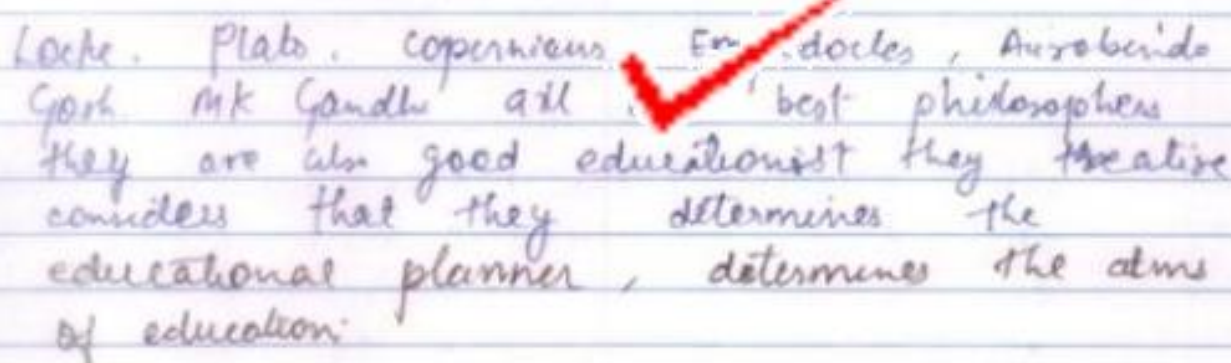 Locke. Plato. Copernicus, Em..docles, Aurobindo
Gosh MK Gandhi all best philosophers
they are also good educationist they
considers that they determines the
educational planner, determines the aims
of education.